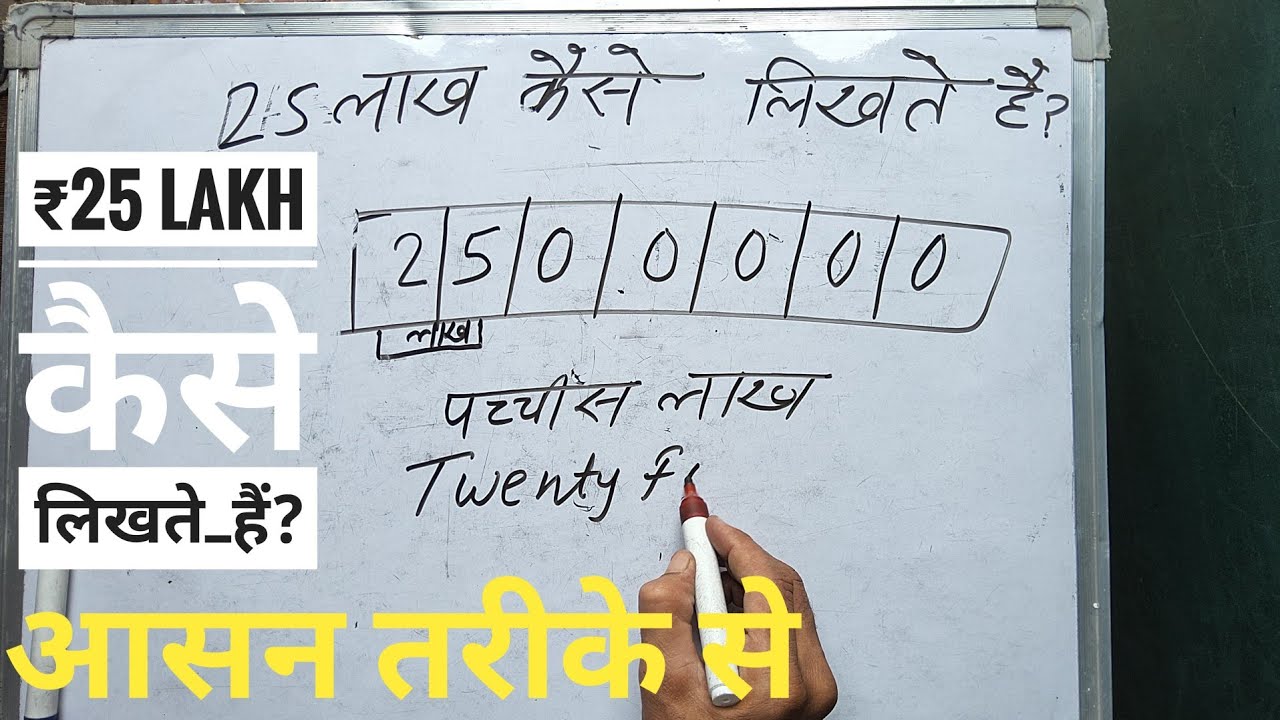 25 लाख कैसे लिखते हैं?
₹25 LAKH
कैसे
लिखते_हैं?
2 5 0 0 0 0 0
लाख
पच्चीस लाख
Twenty f
आसन तरीके से